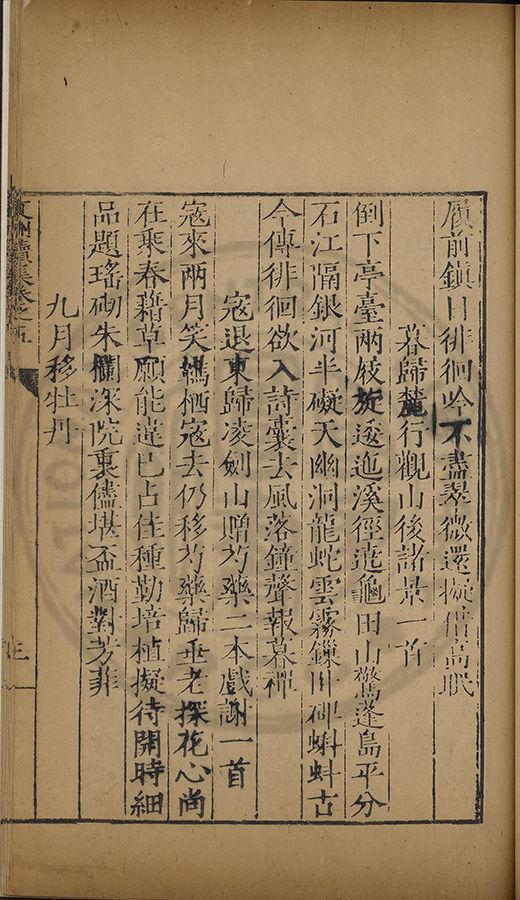 屐前鎮日徘徊吟不盡翠微還擬借高眠
暮歸麓行觀山後諸景一首
倒下亭臺兩屐旋逶迤溪徑遶龜田山驚蓬島平分
石江隔銀河半礙天幽洞龍蛇雲霧鏁碑蝌蚪古
今傳徘徊欲入詩囊去風落鐘聲報暮禪
寇退東歸凌劍山贈芍藥二本戲謝一首
寇來兩月笑栖寇去仍移芍藥歸垂老探花心尚
在乘春藉草願能違已占佳種勤培植擬待開時細
品題瑤砌朱欄深院裏儘堪盃酒對芳菲
九月移牡丹
續集卷之五